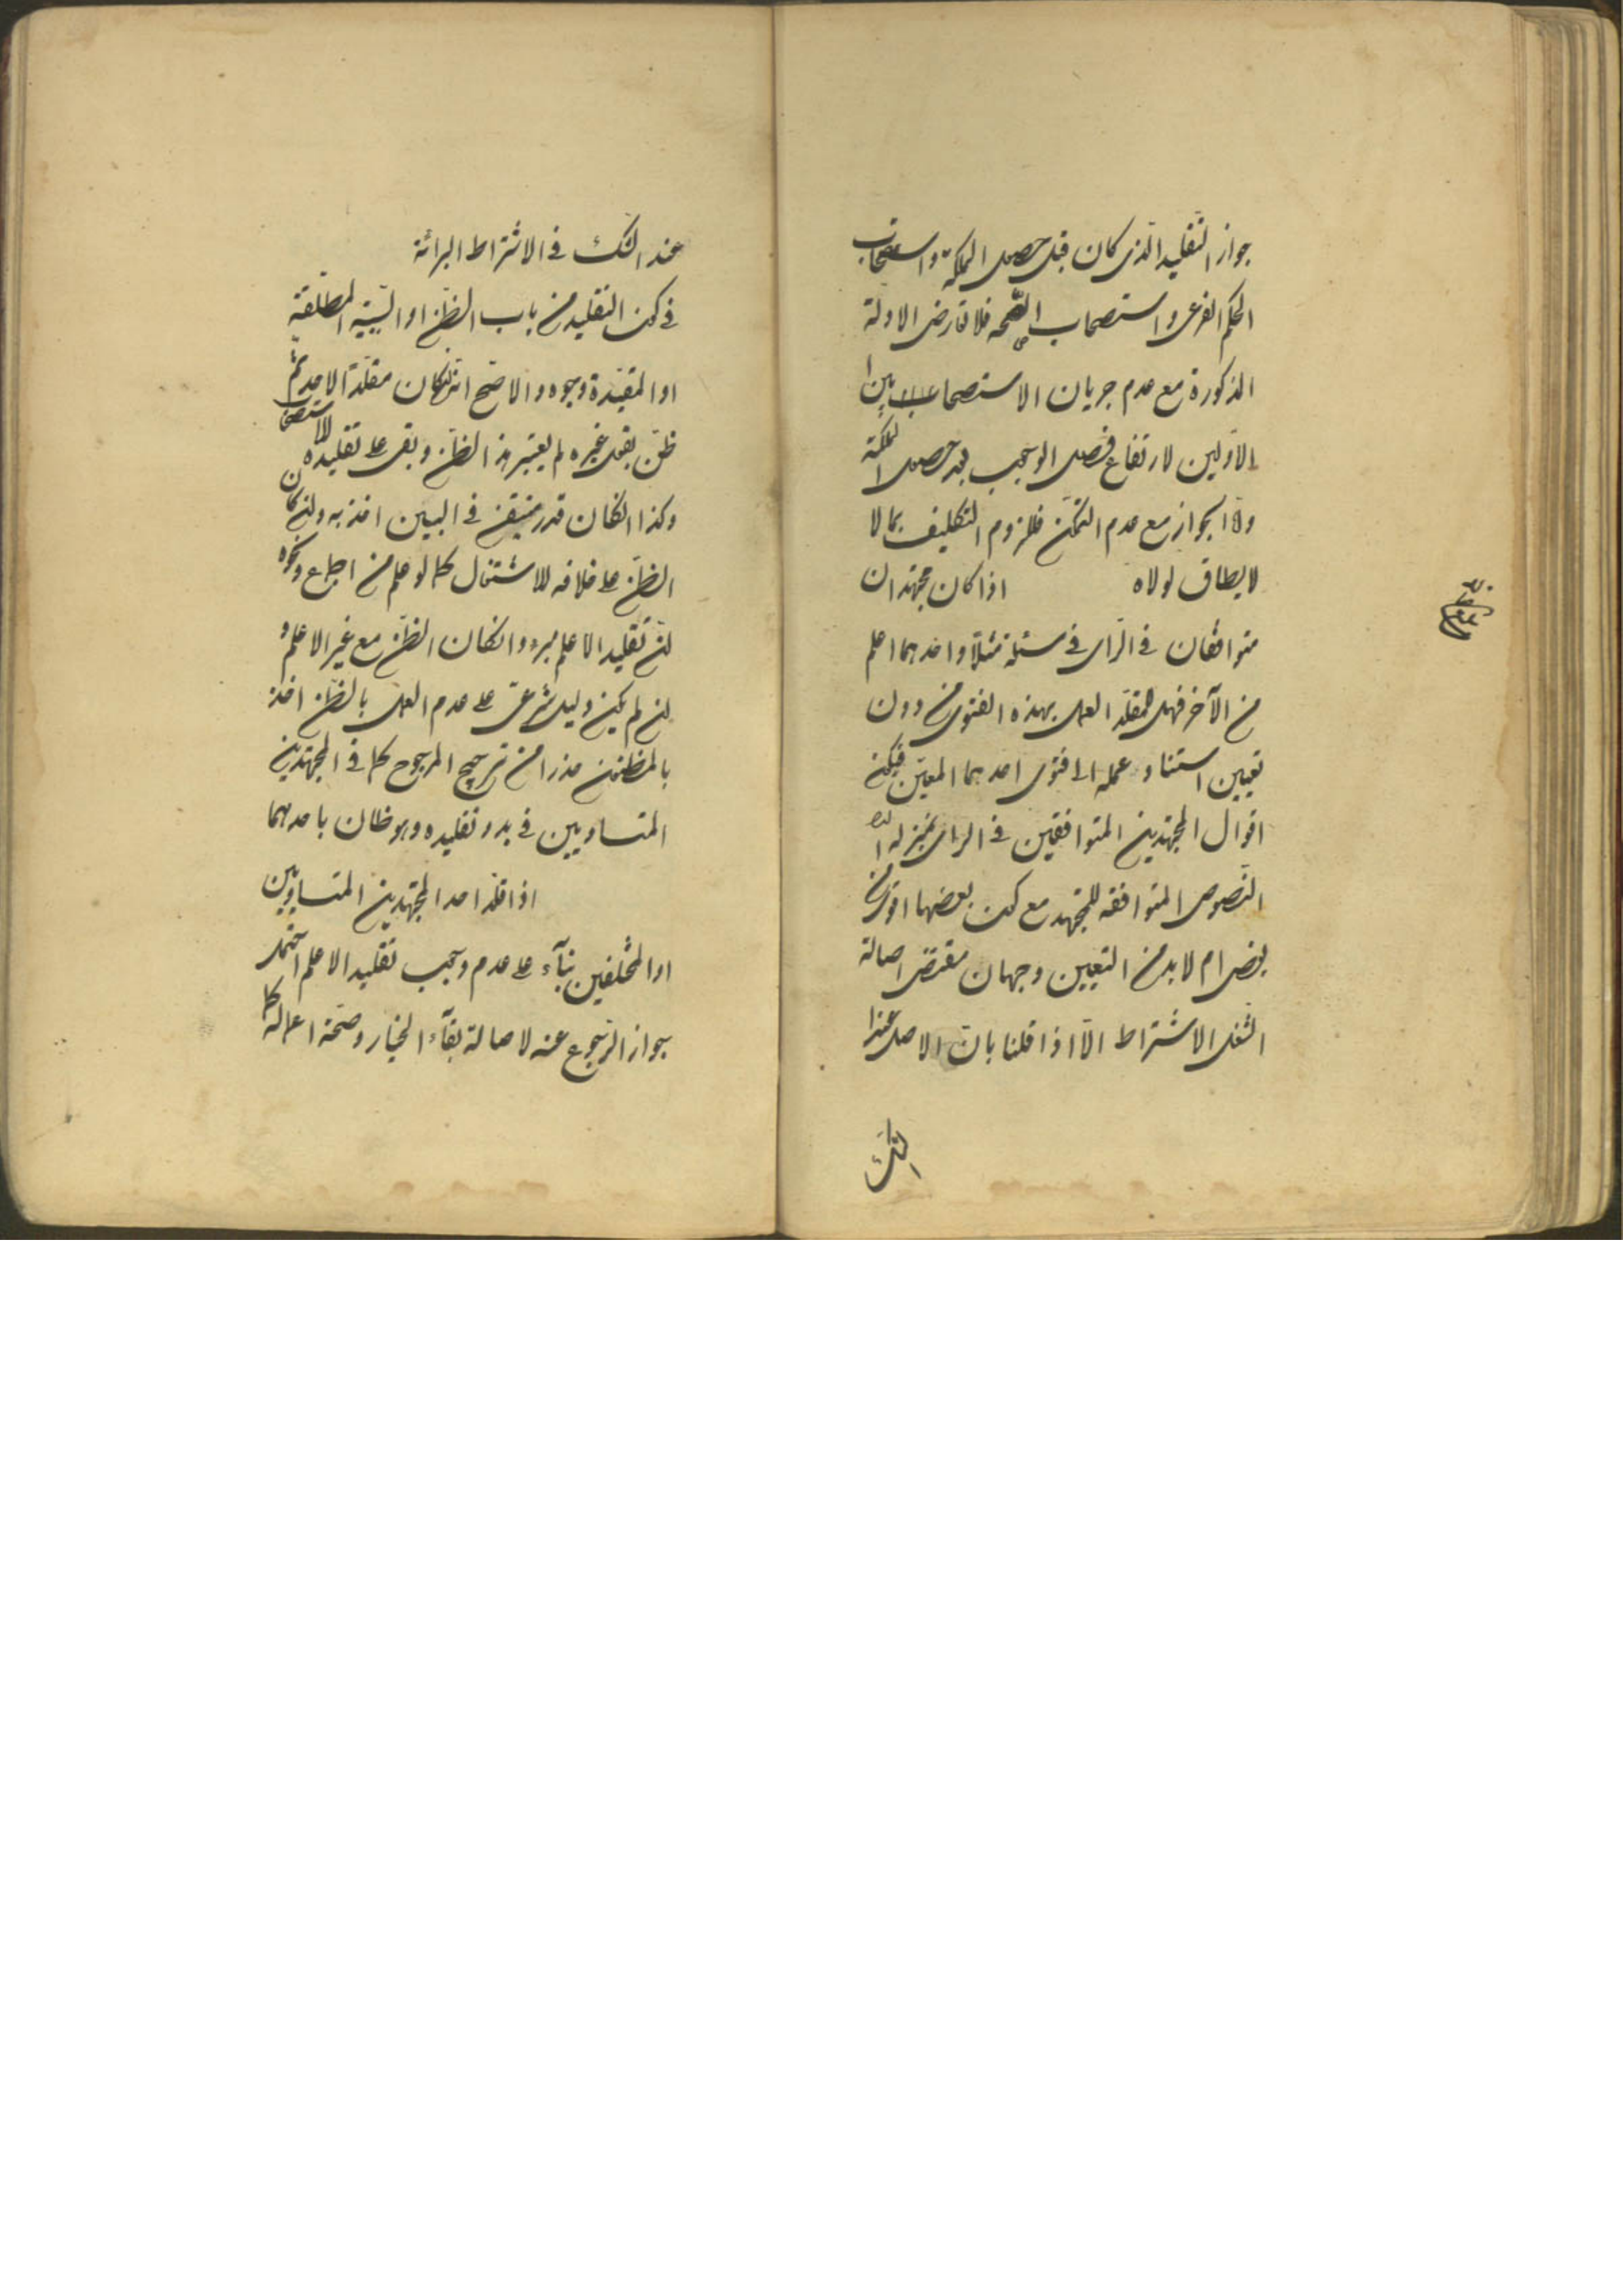 جواز التقليد الذی کان قبل حصول الملکة و استصحاب
الحکم الفرعی و استصحاب الصحه فلا تعارض الادلة
المذکورة مع عدم جریان الاستصحابین
الاولین لارتفاع فصل الوجوب بعد حصول الملکة
و امّا الجواز مع عدم التمکن فللزوم التکلیف بما لا
لا یطاق لولاه اذا کان مجتهدان
متوافقان فی الرای فی مسئلة مثلا و احدهما اعلم
من الآخر فهل للمقلد العمل بهذه الفتوی من دون
تعیین استناد عمله الی فتوی احدهما المعین فیکون
اقوال المجتهدین المتوافقین فی الرای بمنزلة
النصوص المتوافقه للمجتهد مع کون بعضها اقوی من
بعض ام لا بد من التعیین وجهان مقتضی اصالة
الشغل الاشتراط الّا اذا قلنا بان الاصل عند
الشک
عند الشک فی الاشتراط البرائة
فی کون التقلید من باب الظن او السببیه المطلقة
او المقیدة وجوه و الاصح انه لو کان مقلدا لاحد ثم
ظن بقول غیره لم یعتبر هذا الظن و بقی علی تقلیده للاستصحاب
و کذا لو کان قدر متیقن فی البین اخذ به و ان کان
الظن علی خلافه للاشتغال کما لو علم من اجماع و نحوه
ان تقلید الاعلم مبرء و ان کان الظن مع غیر الاعلم و
ان لم یکن دلیل شرعی علی عدم العمل بالظن اخذ
بالمظنون حذرا من ترجیح المرجوح کما فی المجتهدین
المتساویین فی بدو تقلیده و هو ظان باحدهما
اذا قلد احد المجتهدین المتساویین
او المختلفین بناء علی عدم وجوب تقلید الاعلم احتمل
جواز الرجوع عنه لاصالة بقاء الخیار و صحة اعماله کما